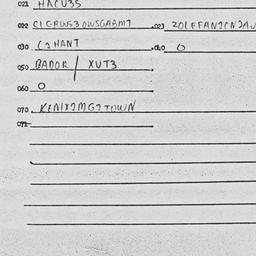 021 HACU35
022 CLGRWS3OWSGABM7 023 ZOLEFAN2CN2AU
030 C2HANT 040 O
050 BADOR / XUT3
060 O
070 KENIX2MG2TOWN
072